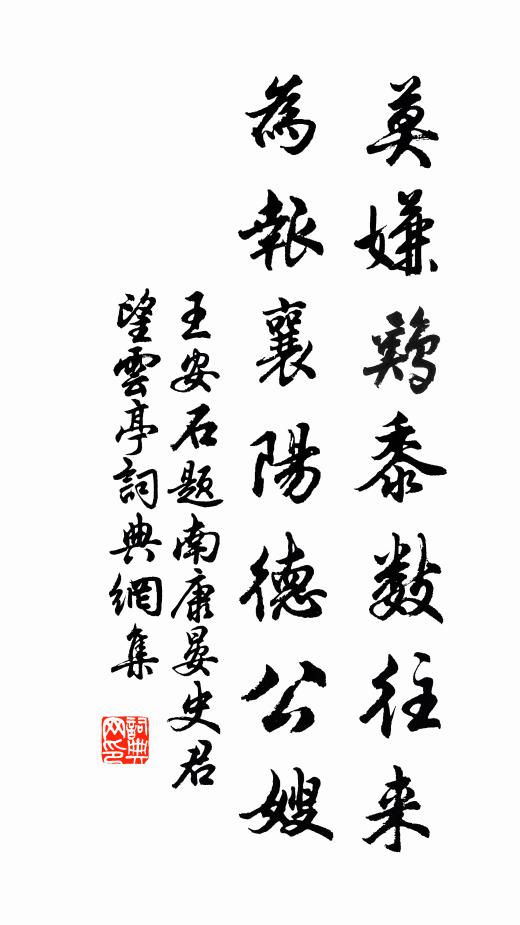 莫嫌鷄黍数往来
為報襄陽德公嫂
王安石题南康晏史君
望雲亭詞典網集
詞典網印